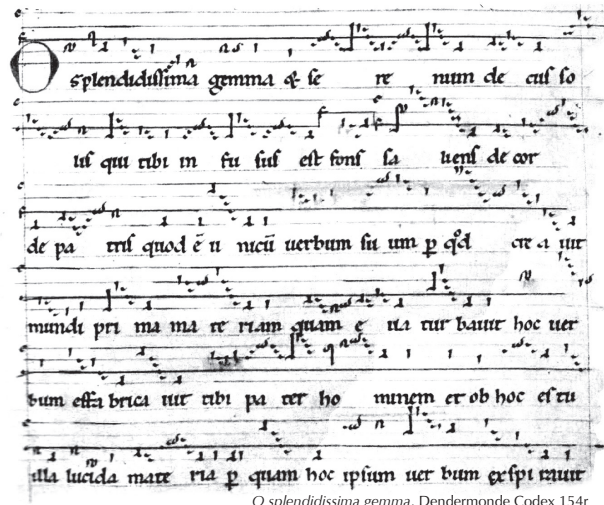 O splendidissima gemma & se re num de cus so
lis qui tibi in fu sus est fons sa liens de cor
de pa tris quod ē u nicū uerbum su um p qd cre a uit
mundi pri ma ma te riam quam e ua tur bauit hoc uer
bum effa brica uit tibi pa ter ho minem et ob hoc es tu
illa lucida mate ria p quam hoc ipsum uer bum exspi rauit
O splendidissima gemma, Dendermonde Codex 154r